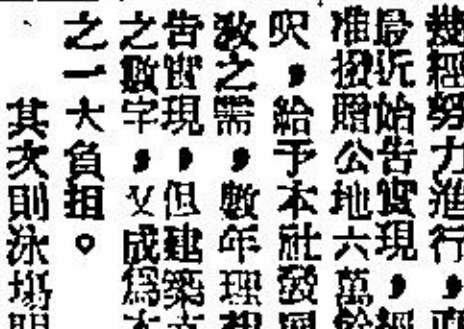 幾經努力進行，
最近始告實現，經
准撥贈公地六萬餘
呎，給予本社發展
教之需，數年理想
告實現，但建築
之數字，又成為本
之一大負担。
其次則泳場